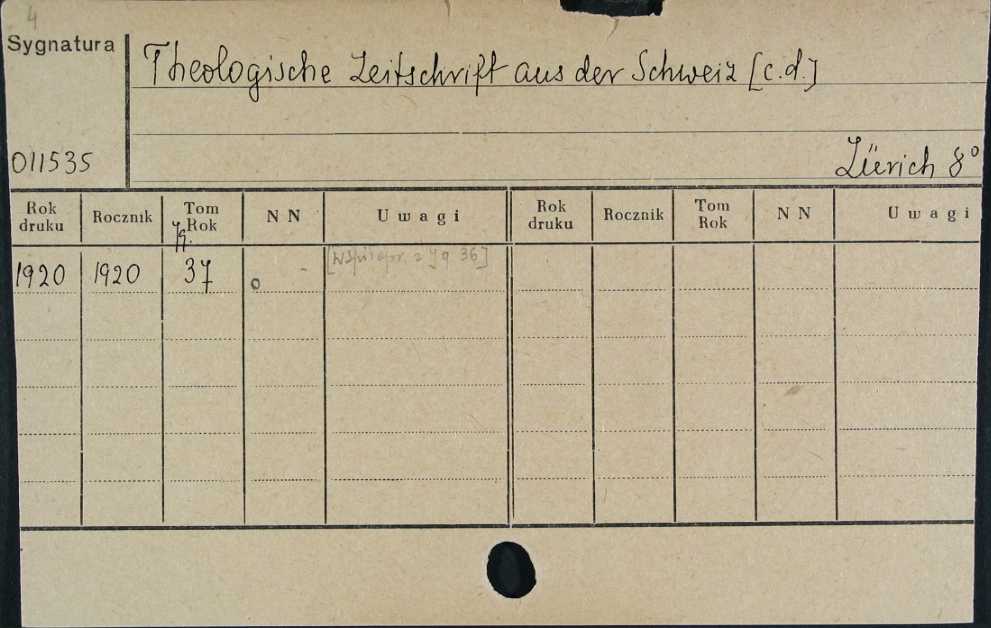 4
Sygnatura
Theologische Zeitschrift aus der Schweiz [c.d.]
011535
Züerich 8°
Rok druku Rocznik Tom Rok NN Uwagi Rok druku Rocznik Tom Rok NN Uwagi
Jg.
1920 1920 37 o - [Współopr. z Jg 36]